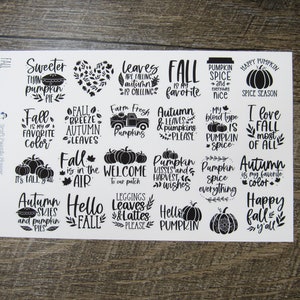 Sweeter
THAN
pumpkin
PIE
leaves
ARE FALLING
AUTUMN
IS CALLING
FALL
is my
favorite
PUMPKIN
SPICE
and
everything
nice
HAPPY PUMPKIN
SPICE SEASON
Fall
IS MY
FAVORITE
COLOR
FALL
BREEZE
AUTUMN
LEAVES
Farm Fresh
PUMPKINS
Autumn
LEAVES &
PUMPKINS
PLEASE
my
blood type
is
PUMPKIN
SPICE
I love
FALL
most of
ALL
IT'S FALL
Fall
IS IN THE
AIR
WELCOME
to our patch
Pumpkin
KISSES AND
HARVEST
wishes
Pumpkin
spice
everything
Autumn
is my favorite
COLOR
Autumn
SKIES
and pumpkin
PIES
Hello
FALL
LEGGINGS
Leaves
&Lattes
PLEASE
Hello
PUMPKIN
Happy
fall
y'all